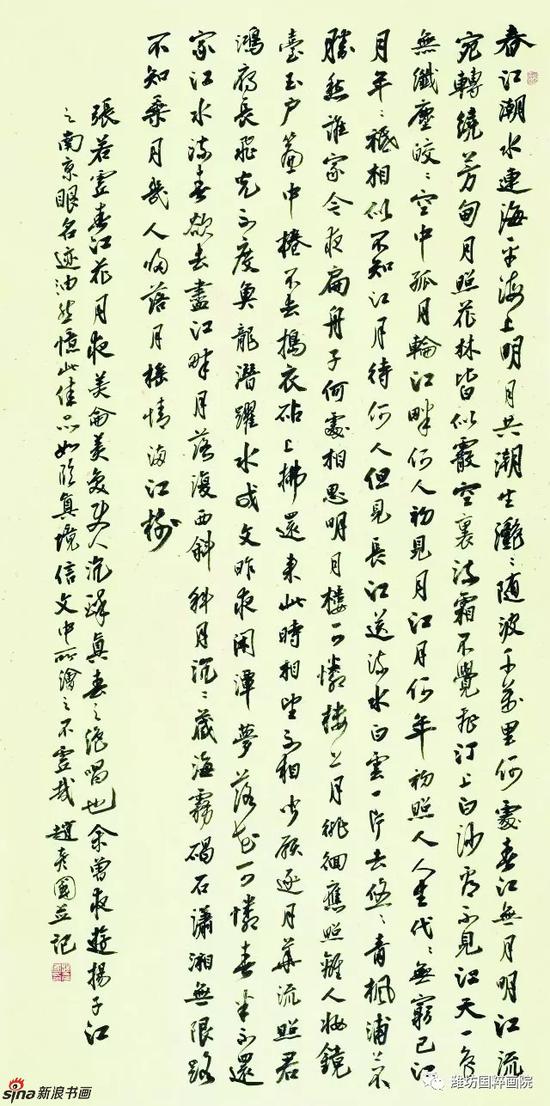 春江潮水連海平海上明月共潮生灔〻随波千萬里何處春江無月明江流
宛轉繞芳甸月照花林皆似霰空裏流霜不覺飛汀上白沙看不見江天一色
無纖塵皎〻空中孤月輪江畔何人初見月江月何年初照人人生代〻無窮已江
月年〻祗相似不知江月待何人但見長江送流水白雲一片去悠〻青楓浦上不
勝愁誰家今夜扁舟子何處相思明月樓可憐樓上月徘徊應照離人妝鏡
臺玉户簾中捲不去搗衣砧上拂還来此時相望不相聞願逐月華流照君
鴻雁長飛光不度魚龍潛躍水成文昨夜閑潭夢落花可憐春半不還
家江水流春欲去盡江畔月落復西斜斜月沉〻藏海霧碣石瀟湘無限路
不知乘月幾人歸落月搖情滿江樹
張若虛春江花月夜美侖美奐使人沉醉真春之絕唱也余曾夜遊揚子江
之南京眼名迹油然憶此佳品如臨真境信文中所繪之不虛哉 趙國並記
sina新浪书画
潍坊国粹画院